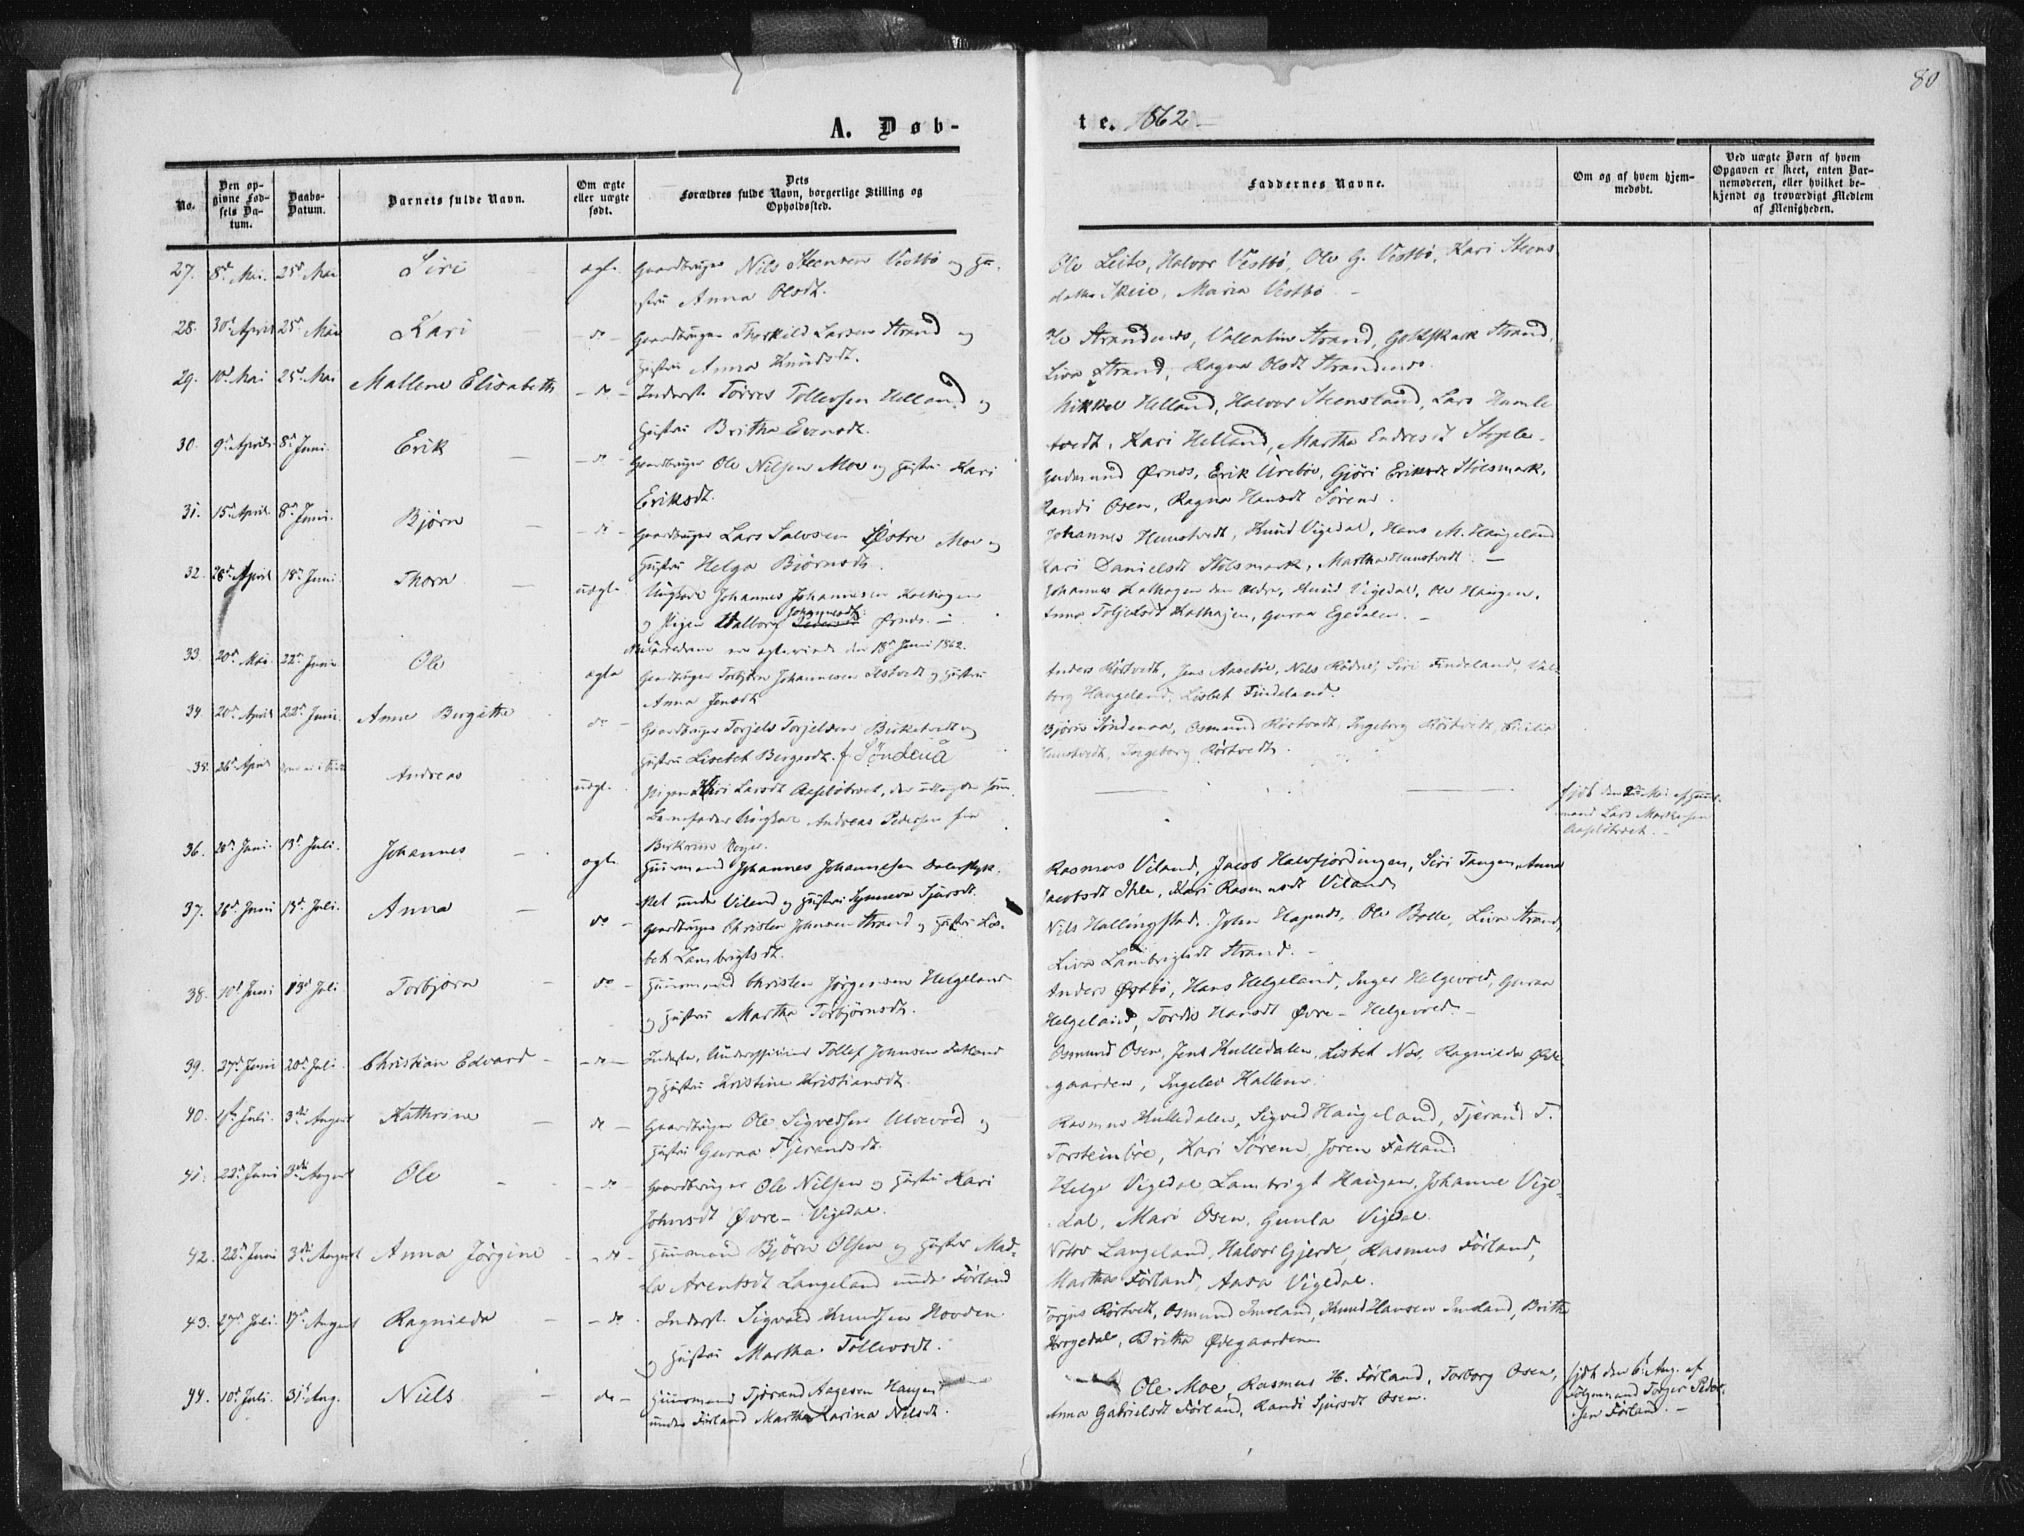 80
A. Døb-
te. 1862
No.
Den op-
givne Fød-
sels Da-
tum.
Daabs-
Datum.
Barnets fulde Navn.
Om ægte
eller uægte
født.
Dets
Forældres fulde Navn, borgerlige Stilling og
Opholdssted.
Faddernes Navne.
Om og af hvem hjem-
medøbt.
Ved uægte Børn af hvem
Opgaven er skeet, enten Bar-
nemoderen, eller hvilket be-
kjendt og troværdigt Medlem
af Menigheden.
27. 8d Mai. 25d Mai Siri ægt. Gaardbruger Nils Steensen Vestbø og Hu-
stru Anna Olsdt.
Ole Leite, Halvor Vestbø, Ole G. Vestbø, Kari Steens
datter Skeie, Maria Vestbø
28. 30d April 25d Mai Kari - do - Gaardbruger Thorkild Larsen Strand og
Hustru Anna Knudsdt.
Ole Strandenes, Valentin Strand, Gotskalk Strand,
Liva Strand, Ragna Olsdt Strandenes.
29. 10d Mai 25d Mai Mallene Elisabeth - do - Inderst Torres Tollevsen Helland og
Hustru Britha Evensdt.
Mikkel Helland, Halvor Steensland, Lars Humle
tvedt, Kari Helland, Martha Endresdt
30. 9d April 8d Juni. Erik - do - Gaardbruger Ole Nilsen Moe og Hustru Kari
Eriksdt.
Gudmund Ørnes, Erik Urebøe, Gjøri Eriksdt Stølsmark,
Randi Osen, Ragna Hansdt Sørene.
31. 15d April. 8d Juni. Bjørn - do - Gaardbruger Lars Salvesen Østre Moe og
Hustru Helga Bjørnsdt.
Johannes Humstvedt, Knud Vigedal, Hans M. Haugeland
Kari Danielsdt Stølsmark, Martha Humstvedt. -
32. 28d April 18d Juni Thorn uægte Ungkarl Johannes Johannesen Kolhagen
og Pigen Valborg Johannesdt. Ørnes. -
Forældrene ere ægteviede den 18d Juni 1862.
Johannes Kalhagen den ældre, Knud Vigedal, Ole Haugen,
Anna Toljelsdt Kalhagen, Guroa Egedalen. -
33. 20d Mai 22d Juni Ole ægte Gaardbruger Torbjørn Johannesen Ilstvedt og Hustru
Anna Jensdt.
Anders Rørtvedt, Jens Aasebøe, Nils Rødne, Siri Findeland, Val-
borg Haugeland, Lisbet Findeland.
34. 20d April 22d Juni. Anne Birgitte do - Gaardbruger Torjels Torjelsen Birketvedt og
Hustru Lisebet Bergesdt. f. Søndenå
Bjørn Søndenaa, Osmund Rørtvedt, Ingeborg Rørtvedt, Cicilia
Humstvedt, Ingeborg Rørtvedt.
35. 26d April Andreas uægt. Pigen Siri Larsdt Aasløbræt, der udlagde som
Barnefader Ungkarl Andreas Pedersen fra
Birkrim Sogn.
hjdt den 2d Mai af Huus-
mand Lars Mortensen
Aasløbræt. -
36. 20d Juni. 13d Juli. Johannes ægt. Huusmand Johannes Johannesen Dalestyk-
ket under Viland og Hustru Synneva Sjursdt.
Rasmus Viland, Jacob Halvfjordingen, Siri Tangen, Anna
Jacobsdt Ihle, Kari Rasmusdt Viland.
37. 26d Juni 13d Juli. Anna do - Gaardbruger Christen Johnsen Strand og Hustru Lis-
bet Lambrigtsdt.
Nils Hallingstad, John Hapnes, Ole Bolle, Liva Strand,
Liva Lambrigtsdt Strand. -
38. 10d Juni 13d Juli Torbjørn do - Huusmand Christen Jørgensen Helgeland
og Hustru Martha Torbjørnsdt.
Anders Østbø, Hans Helgeland, Inger Helgevold, Guroa
Helgeland, Tordis Hansdt Øvre - Helgevold. -
39. 27d Juni 20d Juli. Christian Edvard - - do - Inderst, Underofficier Tollef Johnsen Fatland
og Hustru Kristine Kristiansdt.
Osmund Osen, Jens Hulledalen, Lisbet Næs, Ragnilda Øde-
gaarden, Ingelev Hallene.
40. 4d Juli. 3di August Kathrine - do - Gaardbruger Ole Sigvedsen Ulvevold og
Hustru Guroa Tjerandsdt.
Rasmus Hulledalen, Sigved Haugeland, Tjerand T.
Torsteinbøe, Kari Sørene, Joren Fatland
41. 22d Juni 3di August Ole - - do - Gaardbruger Ole Nilsen og Hustru Kari
Johnsdt Øvre - Vigedal.
Helge Vigedal, Lambrigt Haugen, Johanne Vige-
dal, Mari Osen, Gunla Vigdal.
42. 22d Juni 3di August Anna Jørgine - do - Huusmand Bjørn Olsen og Hustru Mad-
la Arentsdt Langeland under Førland
Langeland, Halvor Gjerde, Rasmus Førland,
Martha Førland, Aasa Vigedal.
43. 27d Juli. 17d August Ragnilda - do - Inderst. Sigvald Knudsen Hovden
og Hustru Martha Tollevsdt.
Torjus Rørtvedt, Osmund Imsland, Knud Hansen Imsland, Britha
Krogedal, Britha Ødegaarden
44. 10d Juli. 31d Aug. Niels - do - Huusmand Tjerand Aagesen Haugen
under Førland Martha Karina Nilsdt.
Ole Moe, Rasmus H. Førland, Torborg Osen,
Anna Gabrielsdt Førland, Randi Sjursdt Osen.
hjdt den 6d Aug. af
Torger Peder-
sen Førland. -